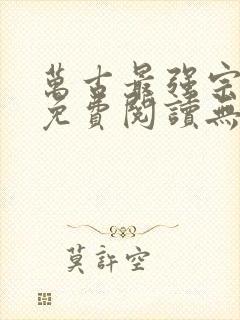 萬古最強宗
免費閱讀無
莫許空